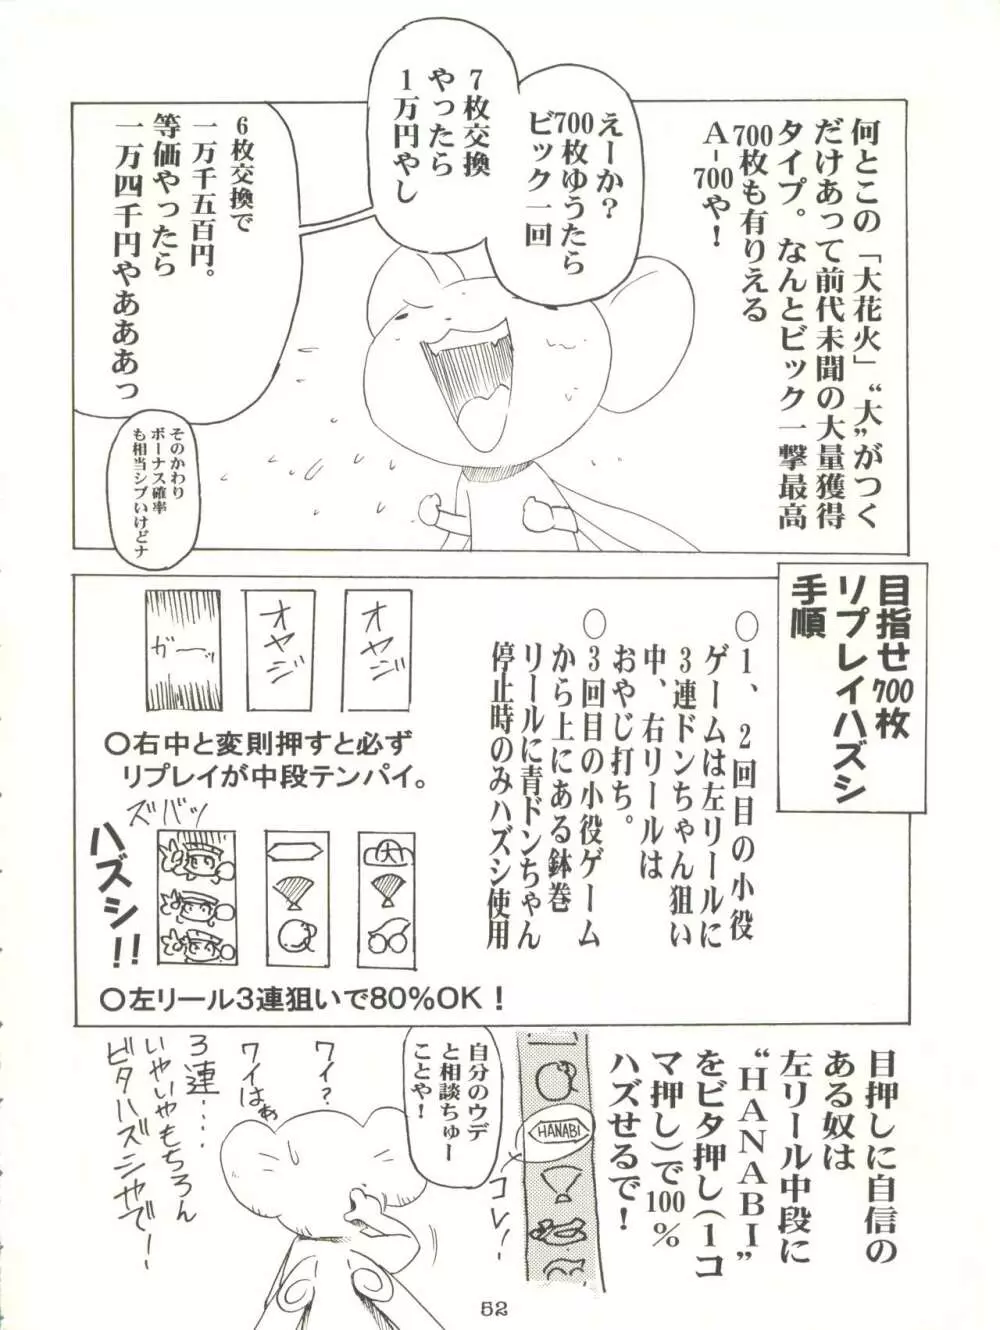 何とこの「大花火」“大”がつく
だけあって前代未聞の大量獲得
タイプ。なんとビック一撃最高
700枚も有りえる
A-700や！
えーか？
700枚ゆうたら
ビック一回
7枚交換
やったら
1万円やし
6枚交換で
一万千五百円。
等価やったら
一万四千円やあああっ
そのかわり
ボーナス確率
も相当シブいけどナ
目指せ700枚
リプレイハズシ
手順
○1、2回目の小役
ゲームは左リールに
3連ドンちゃん狙い
中、右リールは
おやじ打ち。
○3回目の小役ゲーム
から上にある鉢巻
リールに青ドンちゃん
停止時のみハズシ使用
オヤジ
オヤジ
ガーッ
○右中と変則押すと必ず
リプレイが中段テンパイ。
ズバッ
ハズシ!!
大
○左リール3連狙いで80%OK！
目押しに自信の
ある奴は
左リール中段に
“HANABI”
をビタ押し(1コ
マ押し)で100%
ハズせるで！
HANABI
コレ！
自分のウデ
と相談ちゅー
ことや！
ワイ？
ワイはぁ
3連・・・・
いやいやもちろん
ビタハズシやで！
52